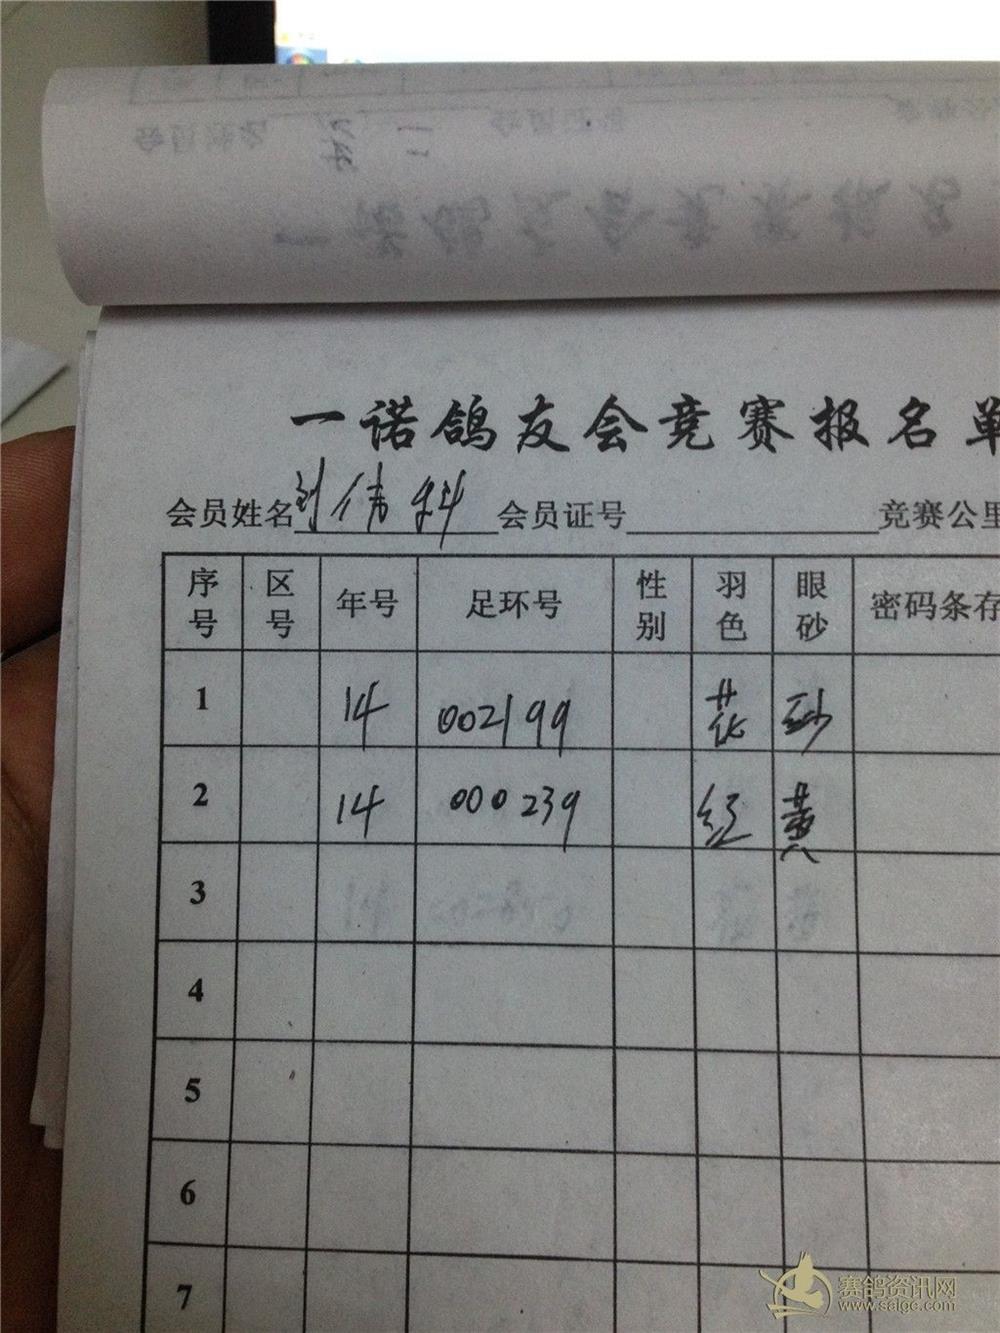 一诺鸽友会竞赛报名单
会员姓名 刘伟科 会员证号 竞赛公里
序号 区号 年号 足环号 性别 羽色 眼砂 密码条存
1 14 002199 花 砂
2 14 000239 红 黄
3
4
5
6
7
赛鸽资讯网
www.saigc.com